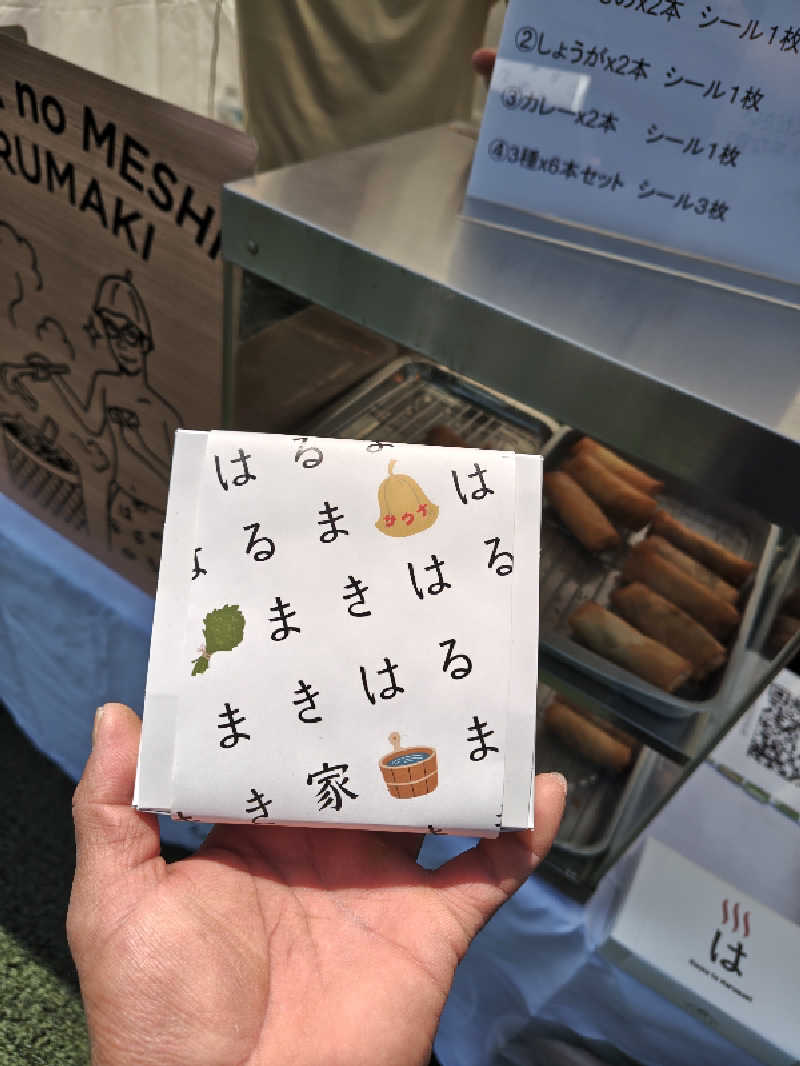 x2本 シール1枚
②しょうがx2本 シール1枚
③カレーx2本 シール1枚
④3種x6本セット シール3枚
no MESHI
RUMAKI
は る ま
る ま サウナ は
ま き は る
ま き は る
き 家 ま
は